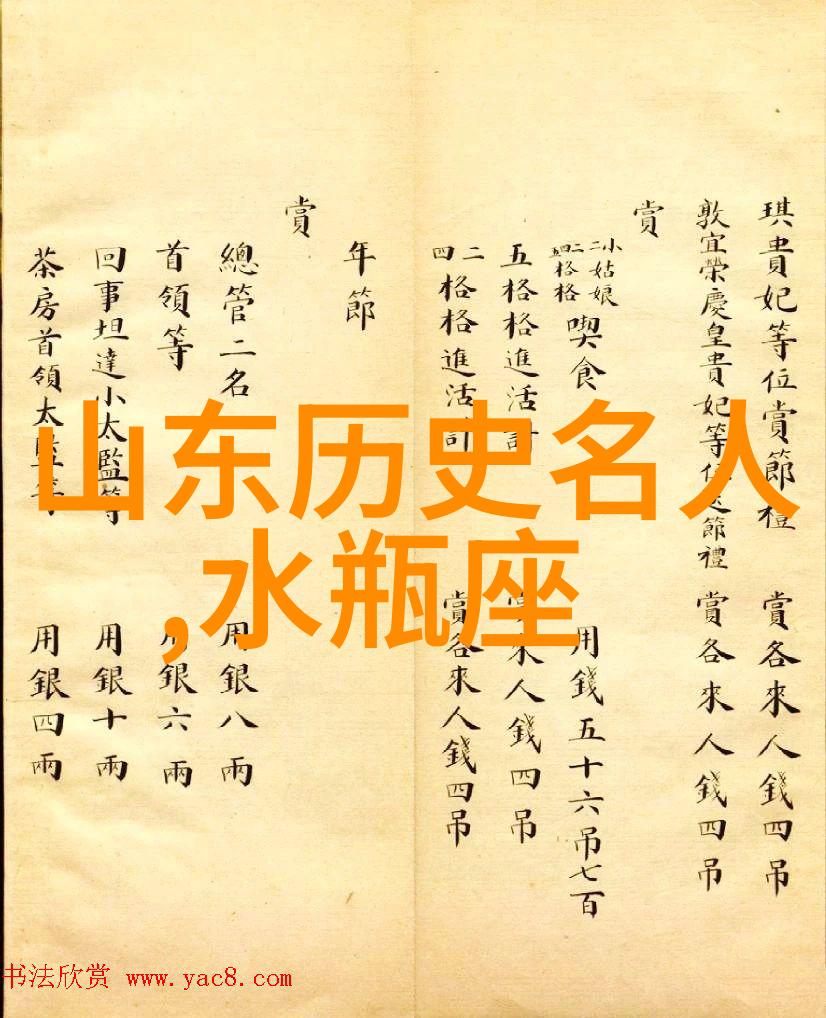 琪貴妃等位賞節禮 賞各來人錢四吊
敦宜榮慶皇貴妃等位送節禮 賞各來人錢四吊
賞
小姑娘
二二四格格 喫食 用錢五十六吊七百
五格格進活計 賞來人錢四吊
二四格格進活計 賞各來人錢四吊
年節
賞
總管二名 用銀八兩
首領等 用銀六兩
回事坦達小太監等 用銀十兩
茶房首領太監等 用銀四兩
山东历史名人
,水瓶座
书法欣赏 www.yac8.com